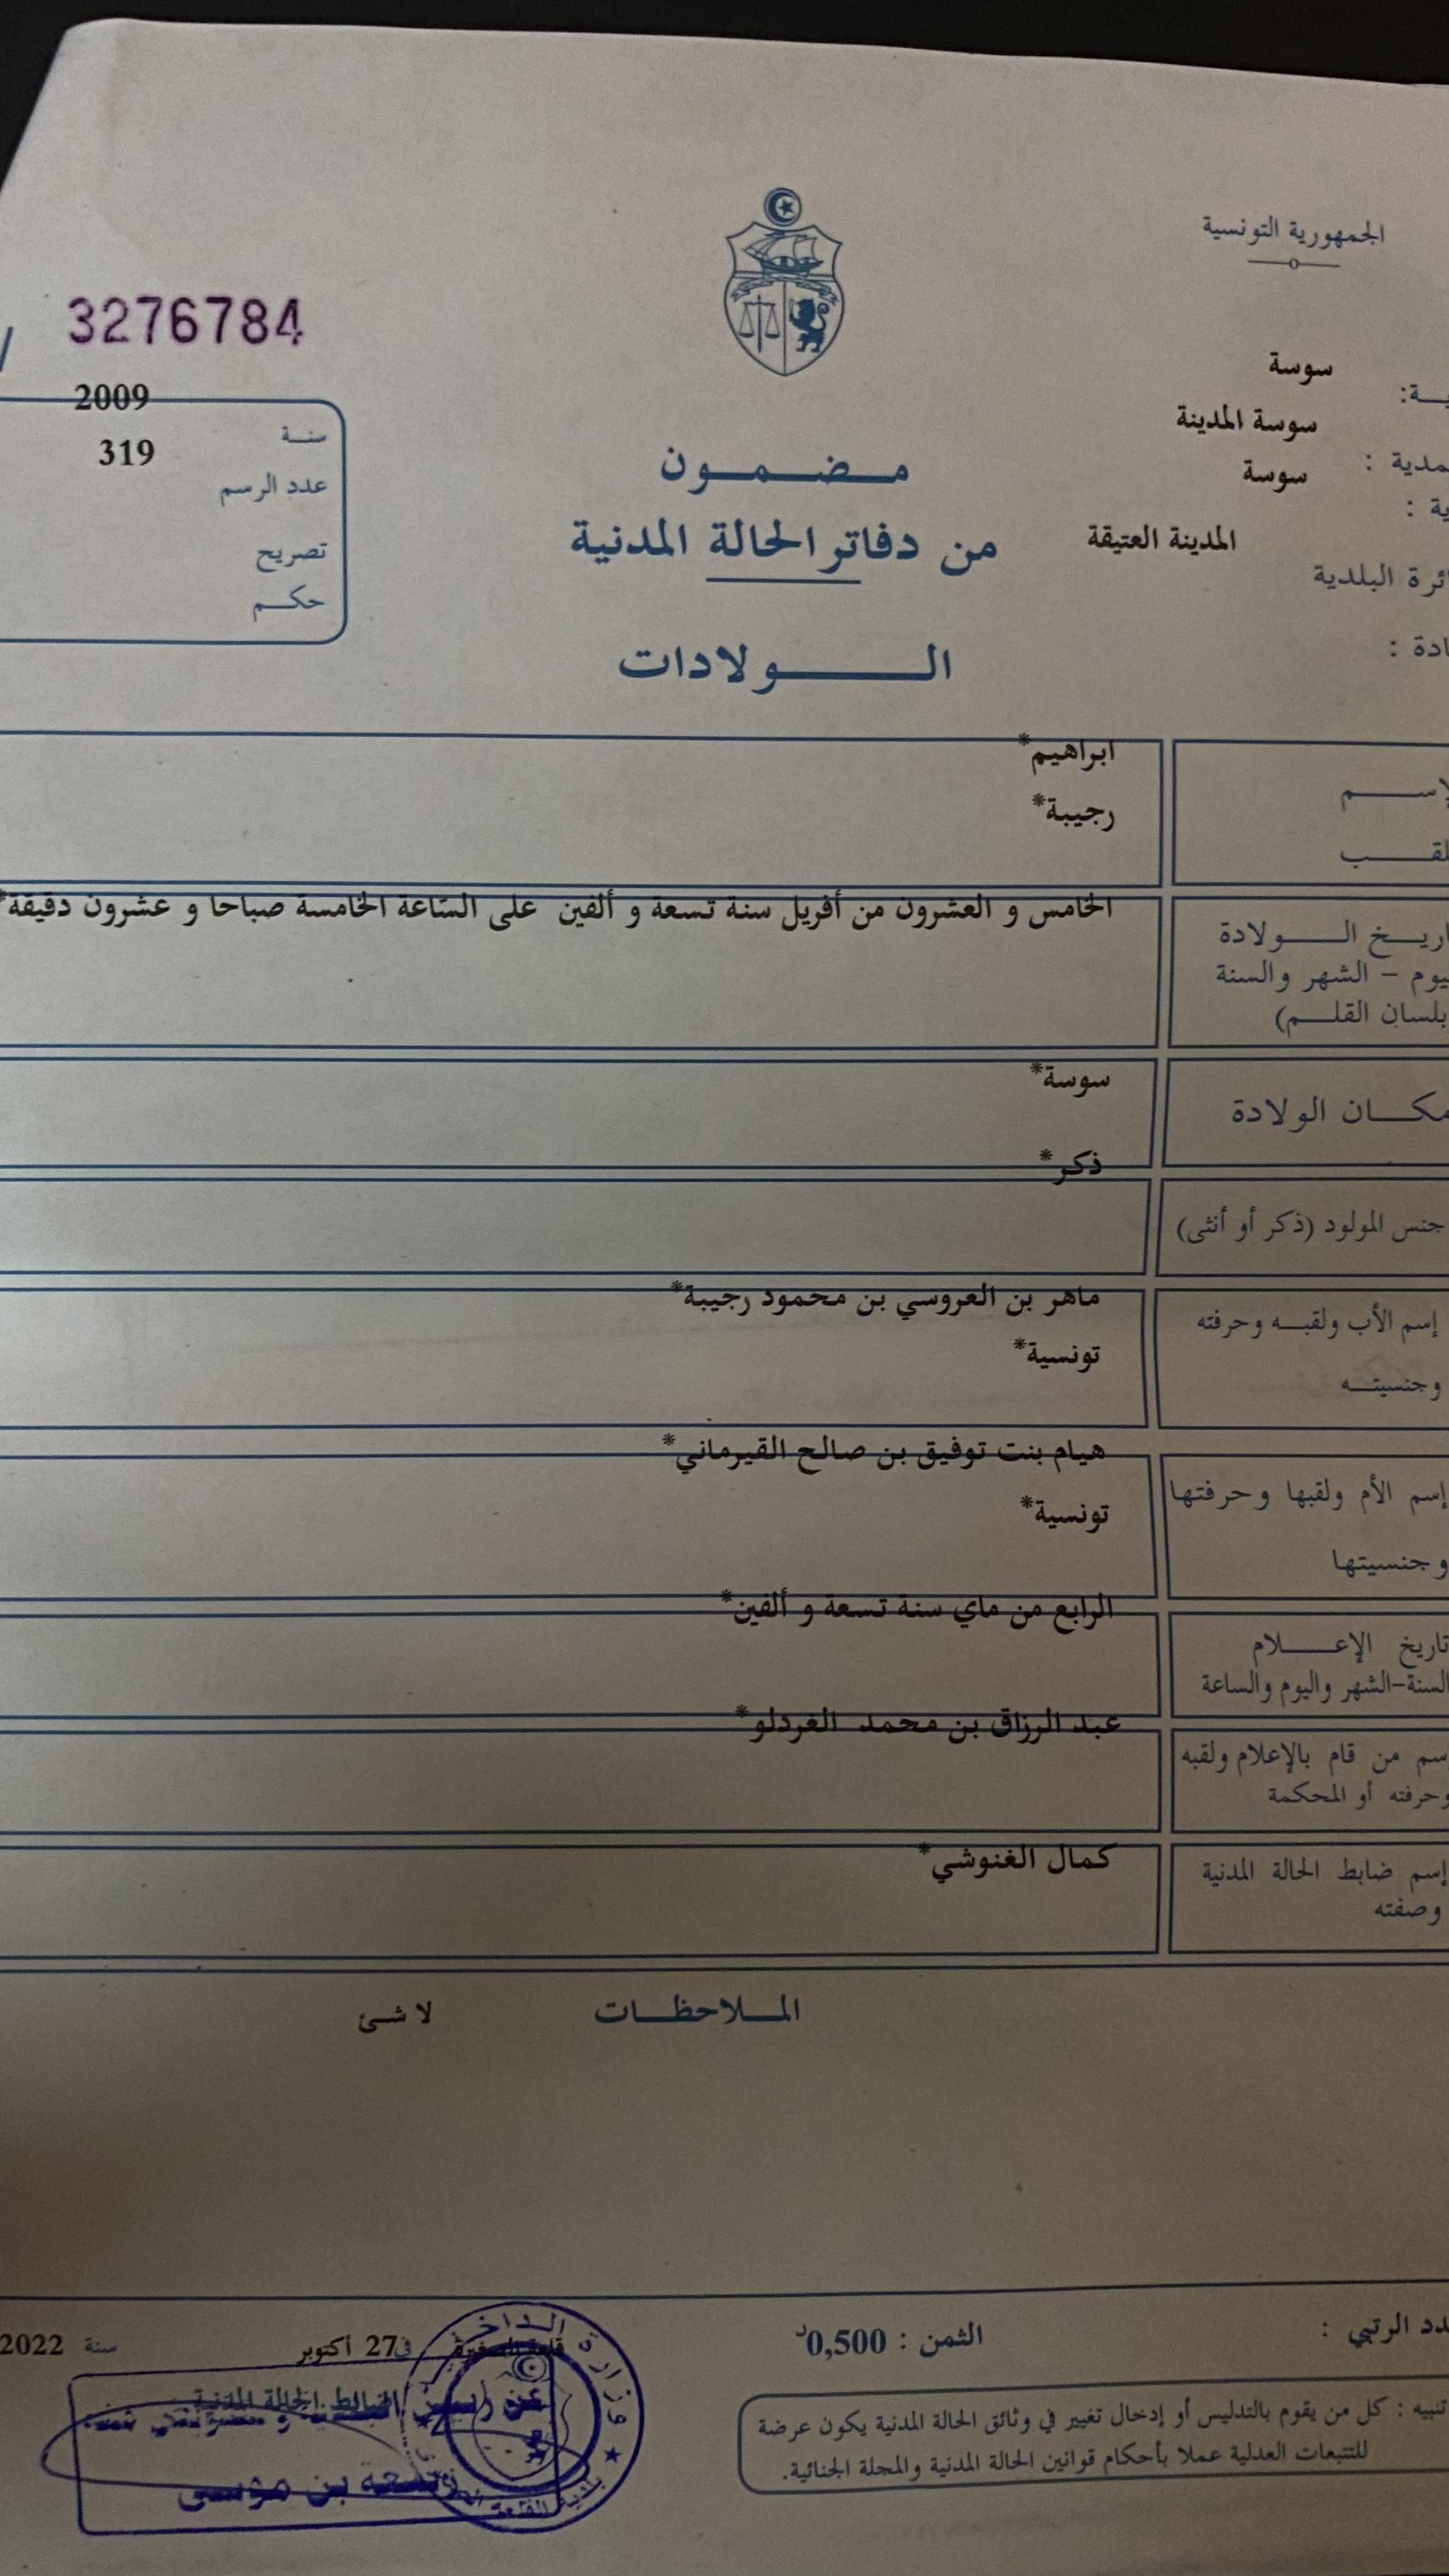 الجمهورية التونسية
3276784
سوسة
سوسة المدينة
سوسة
المدينة العتيقة
ـائرة البلدية
2009
سنة
319
عدد الرسم
تصريح
حكم
مضمون
من دفاتر الحالة المدنية
الولادات
ابراهيم*
رجيبة*
الخامس و العشرون من أفريل سنة تسعة و ألفين على السّاعة الخامسة صباحا و عشرون دقيقة*
ـاريخ الولادة
ـيوم – الشهر والسنة
بلسان القلم)
سوسة*
مكان الولادة
ذكر*
جنس المولود (ذكر أو أنثى)
ماهر بن العروسي بن محمود رجيبة*
إسم الأب ولقبه وحرفته
تونسية*
وجنسيته
هيام بنت توفيق بن صالح القيرماني*
إسم الأم ولقبها وحرفتها
تونسية*
وجنسيتها
الرابع من ماي سنة تسعة و ألفين*
تاريخ الإعلام
السنة-الشهر واليوم والساعة
عبد الرزاق بن محمد الغردلو*
ـسم من قام بالإعلام ولقبه
وحرفته أو المحكمة
كمال الغنوشي*
إسم ضابط الحالة المدنية
وصفته
الملاحظات لا شئ
ـدد الرتبي :
الثمن : 0,500د
في 27 أكتوبر سنة 2022
ضابط الحالة المدنية
بن موسى
وزارة الداخلية
تنبيه : كل من يقوم بالتدليس أو إدخال تغيير في وثائق الحالة المدنية يكون عرضة
للتتبعات العدلية عملا بأحكام قوانين الحالة المدنية والمجلة الجنائية.